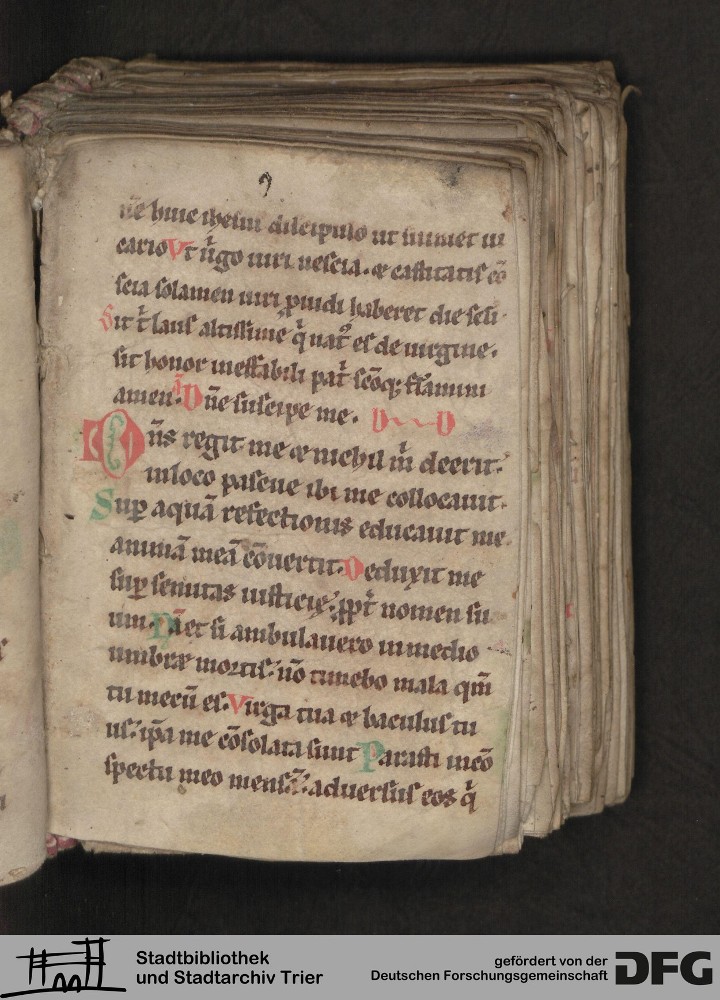 huic ihesu discipulo ut
cario Vt ūgo uiri nescia. & castitatis cō
scia solamen uiri ꝓuidi haberet die
Sit t̄ laus altissime q̄ nat᷒ es de uirgine.
sit honor ineffabili pat̄ scōq; flamini
amen. A Dn̄e suscipe me. D D
Dn̄s regit me & nichil m̄ deerit.
inloco pascue ibi me collocauit.
Suꝑ aquā refectionis educauit me
animā meā cōuertit. Deduxit me
suꝑ semitas iusticie, ꝓpt̄ nomen su
um. Nā et si ambulauero in medio
umbre mortis, nō timebo mala qm̄
tu mecū es. Virga tua & baculus tu
us, ipa me cōsolata sunt Parasti incō
spectu meo mensā, aduersus eos q̄
Stadtbibliothek
und Stadtarchiv Trier
gefördert von der
Deutschen Forschungsgemeinschaft DFG